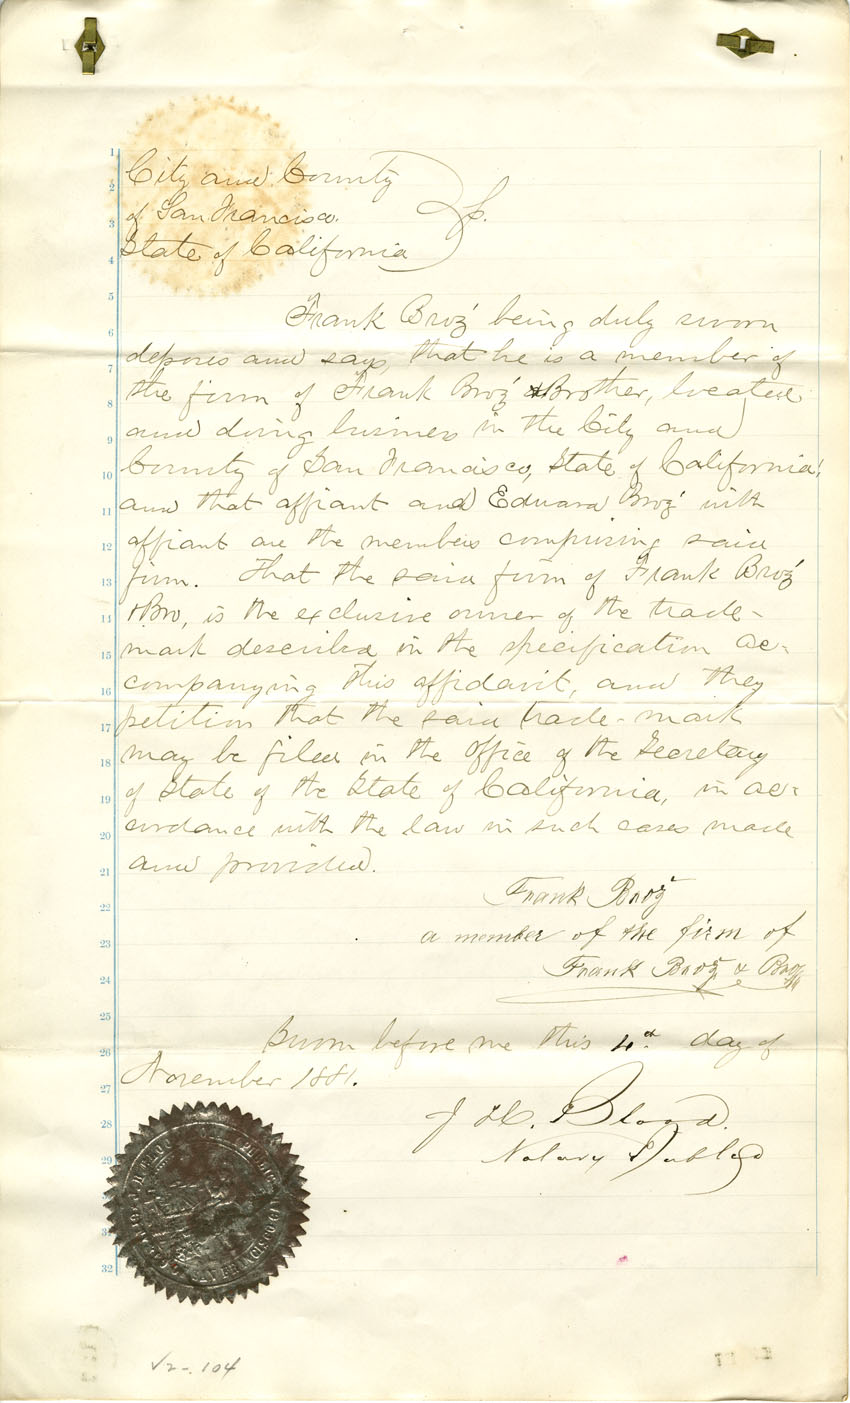 City and County
of San Francisco. } ss.
State of California
Frank Broź being duly sworn
deposes and says, that he is a member of
the firm of Frank Broź & Brother, located
and doing business in the City and
County of San Francisco, State of California,
and that affiant and Edward Broź with
affiant are the members comprising said
firm. That the said firm of Frank Broź
& Bro, is the exclusive owner of the trade-
mark described in the specification ac-
companying this affidavit, and they
petition that the said trade-mark
may be filed in the Office of the Secretary
of State of the State of California, in ac-
cordance with the law in such cases made
and provided.
Frank Broź
a member of the firm of
Frank Broź & Bro
Sworn before me this 4th day of
November 1881.
J. H. Blood.
Notary Public
1
2
3
4
5
6
7
8
9
10
11
12
13
14
15
16
17
18
19
20
21
22
23
24
25
26
27
28
29
32
NOTARY PUBLIC
SAN FRANCISCO
√2-.104